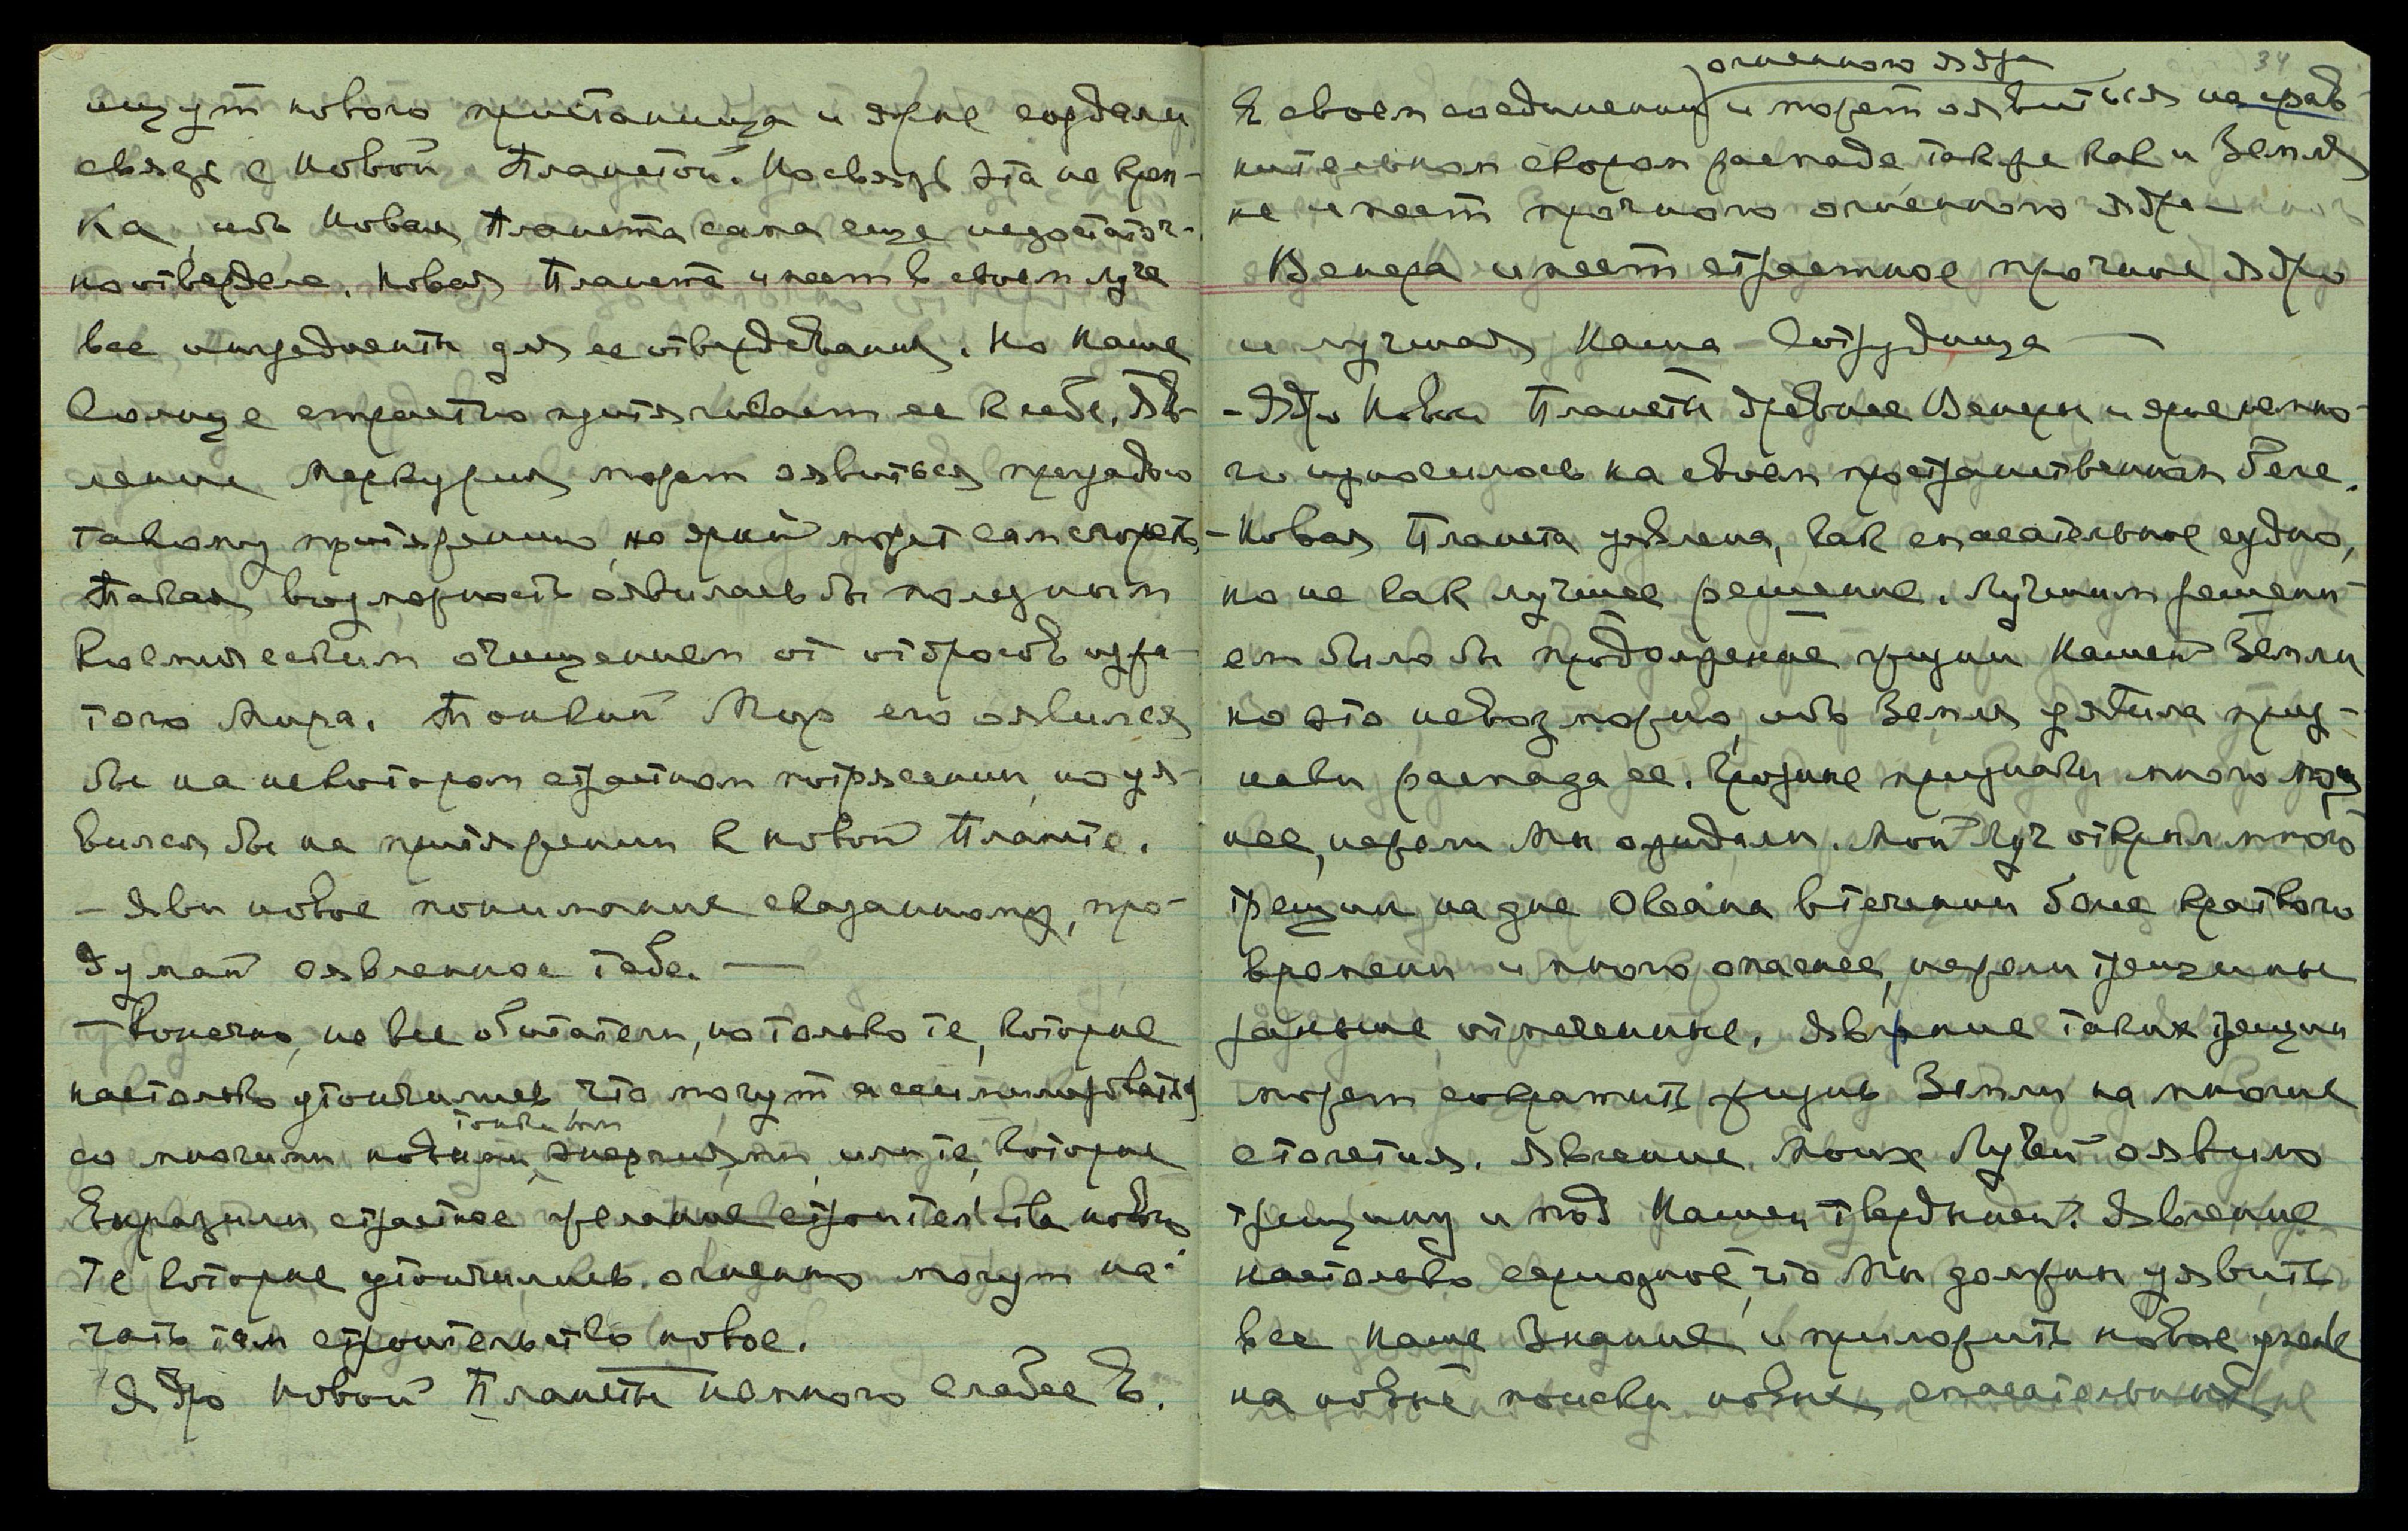 ищут нового пристанища и ярые создали
связь с Новой Планетой. Но связь эта не креп-
ка, ибо Новая Планета сама еще недостаточ-
но отвердела. Новая Планета имеет в своем луче
все ингредиенты для ее отвердевания. Но Наше
Солнце страстно притягивает ее к себе. Яв-
ление Меркурия может оявиться преградою
такому притяжению, но ярый может сам сгореть,
Такая возможность оявилась бы полезным
Космическим очищением от отбросов изжи-
того Мира. Тонкий Мир его оявился
бы на некотором страстном потрясении, но уя-
вился бы на притяжении к новой Планете.
– Яви новое понимание сказанному, про-
думай оявленное тебе. —
– Конечно, не все обитатели, но только те, которые
настолько утончились, что могут ассимилироваться
со многими новыми энергиями, или те, которые
тонкими
выразили страстное желание строительства новых
Те которые утончились огненно могут на-
чать там строительство новое.
Ядро Новой Планеты немного слабее В.
огненного ядра
34
В своем соединении и может оявиться на срав-
нительном скором распаде, также как и Земля
не имеет прочного огненного ядра —
Венера имеет страстное прочное ядро
и лучшая Наша Сотрудница —
– Ядро Новой Планеты древнее Венеры и ярое немно-
го износилось на своем пространственном беге.
– Новая Планета уявлена, как спасательное судно,
но не как лучшее решение. Лучшим решени-
ем было бы продолжение жизни Нашей Земли
но это невозможно, ибо Земля уявила приз-
наки распада ее. Грозные признаки много
нее, нежели Мы ожидали. Мой Луч открыл много
трещин на дне Океана в течении более краткого
времени и много опаснее, нежели трещины
раньше отмеченные. Явление таких трещин
может сократить жизнь Земли на многие
столетия. Явление Моих Лучей оявило
трещину и под Нашей твердыней. Явление
настолько серьезное, что Мы должны уявить
все Наше Знание и приложить новое
на новые поиски новых спасательных